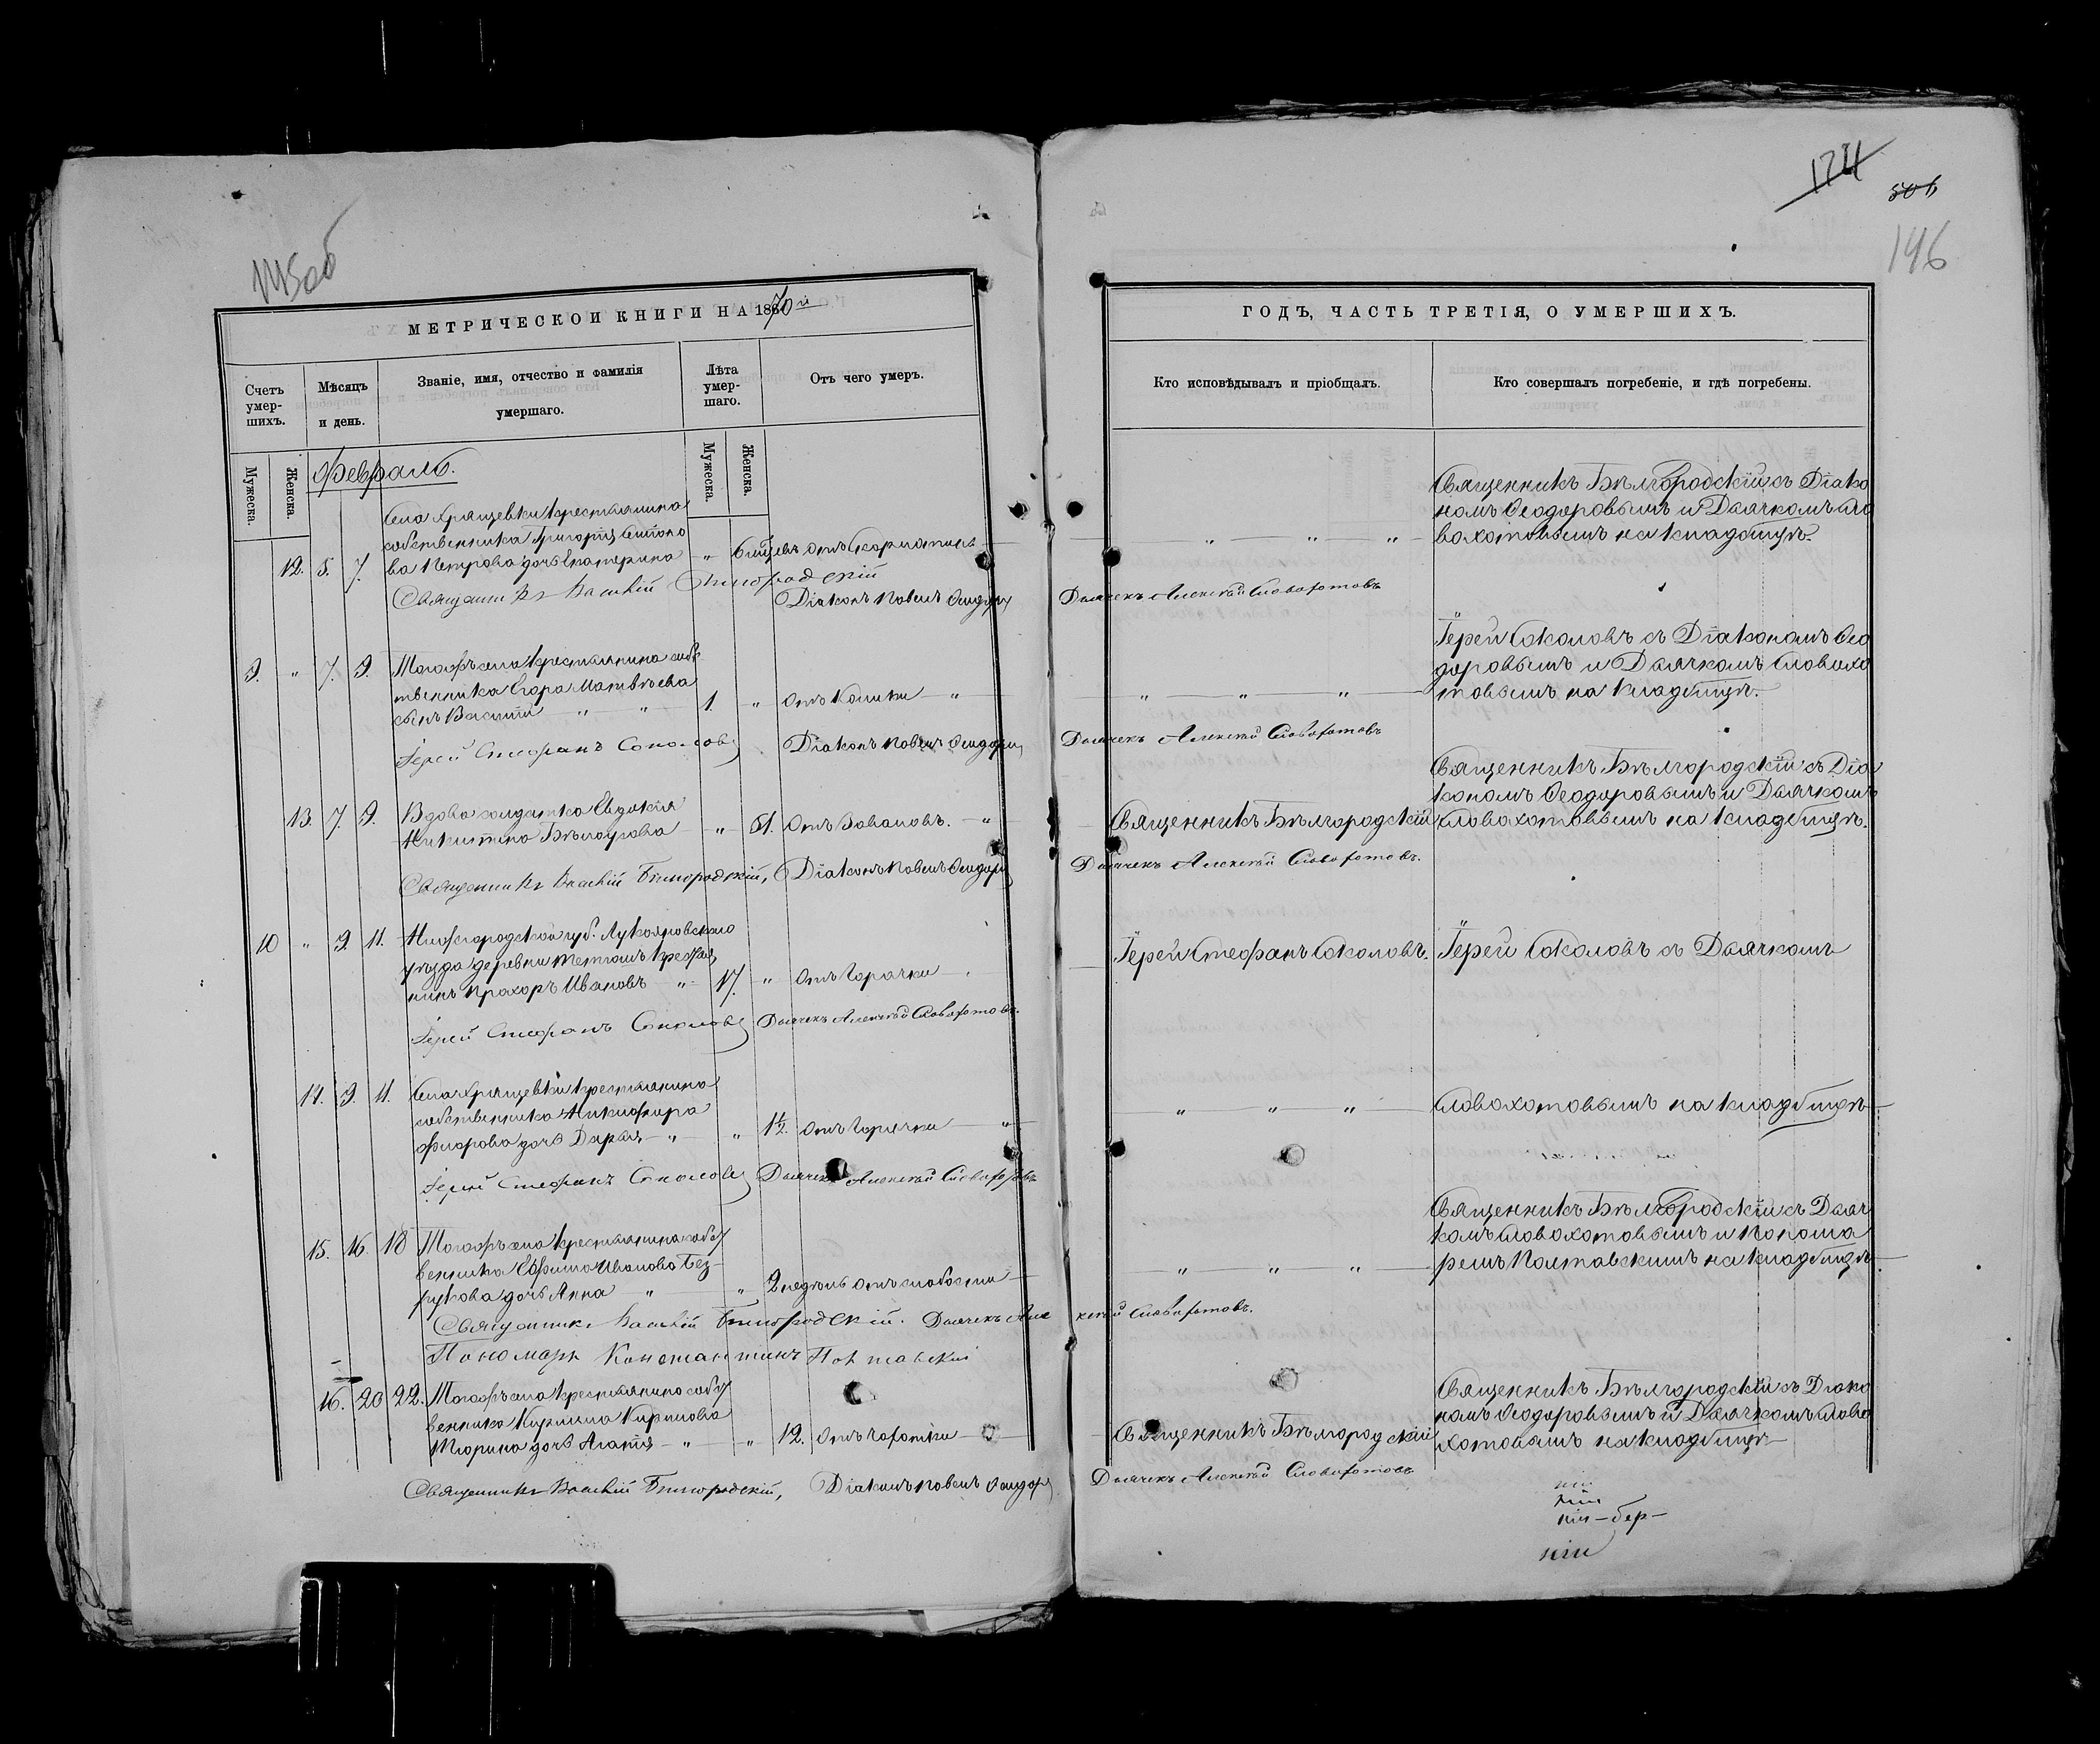 145 об
МЕТРИЧЕСКОЙ КНИГИ НА 1870й
Счетъ умер-шихъ.
Мѣсяцъ и день.
Званіе, имя, отчество и фамилія умершаго.
Лѣта умер-шаго.
Отъ чего умеръ.
Мужеска.
Женска.
Мужеска.
Женска.
Февраль.
Села Хрящевки крестьянина
собственника Григорія
12. 5. 7. ва Петрова дочь Екатерина „ 6
Священникъ Василій Бѣлгородскій
Діаконъ Павелъ Ѳеодоровъ
9. „ 7. 9. Тогожъ села крестьянина собс
твенника Егора Матвѣева
сынъ Василій „ „ 1. „ Отъ колики „
Іерей Стефанъ Соколовъ Діаконъ Павелъ Ѳеодоровъ
13. 7. 9. Вдова солдатка Евдокія
Никитина „ 61. Отъ „
Священникъ Василій Бѣлгородскій, Діаконъ Павелъ Ѳеодоровъ
10 „ 9. 11. Нижегородской губ. Лукояновскаго
уѣзда деревни крестья
нинъ Прохоръ Ивановъ „ 17. „ Отъ горячки
Іерей Стефанъ Соколовъ Дьячекъ Алексѣй Словохотовъ.
14. 9. 11. Села Хрящевки крестьянина
собственника Никифора
дочь Дарья „ „ 1½. Отъ горячки „
Іерей Стефанъ Соколовъ Дьячекъ Алексѣй Словохотовъ
15. 16. 18 Тогожъ села крестьянина собст
венника Ефима Иванова Без-
рукова дочь Анна „ „ 2 недѣль отъ слабости
Священникъ Василій Бѣлгородскій. Дьячекъ Але
ксѣй Словохотовъ.
Пономарь Константинъ Полтавскій
16. 20 22. Тогожъ села крестьянина собст
венника Кирила Кирилова
Тюрина дочь Агафія „ „ 12. Отъ чахотки
Священникъ Василій Бѣлгородскій, Діаконъ Павелъ Ѳеодоровъ
174
506
146
ГОДЪ, ЧАСТЬ ТРЕТІЯ, О УМЕРШИХЪ.
Кто исповѣдывалъ и пріобщалъ.
Кто совершалъ погребеніе, и гдѣ погребены.
Священникъ Бѣлгородскій съ Діако
номъ Ѳеодоровымъ и Дьячкомъ Сло
„ „ „ вохотовымъ на кладбищѣ.
Дьячекъ Алексѣй Словохотовъ
Іерей Соколовъ съ Діакономъ Ѳео
доровымъ и Дьячкомъ Словохо
„ „ „ товымъ на кладбищѣ.
Дьячекъ Алексѣй Словохотовъ
Священникъ Бѣлгородскій съ Діа
кономъ Ѳеодоровымъ и Дьячкомъ
Священникъ Бѣлгородскій Словохотовымъ на кладбищѣ.
Дьячекъ Алексѣй Словохотовъ.
Іерей Стефанъ Соколовъ. Іерей Соколовъ съ Дьячкомъ
„ „ „ Словохотовымъ на кладбищѣ
Священникъ Бѣлгородскій съ Дьяч
комъ Словохотовымъ и Понома
„ „ „ ремъ Полтавскимъ на кладбищѣ.
Священникъ Бѣлгородскій съ Діако
номъ Ѳеодоровымъ и Дьячкомъ Слово
Священникъ Бѣлгородскій хотовымъ на кладбищѣ
Дьячекъ Алексѣй Словохотовъ